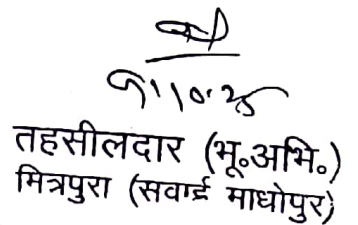 तहसीलदार (भू॰अभि॰)
मित्रपुरा (सवाई माधोपुर)